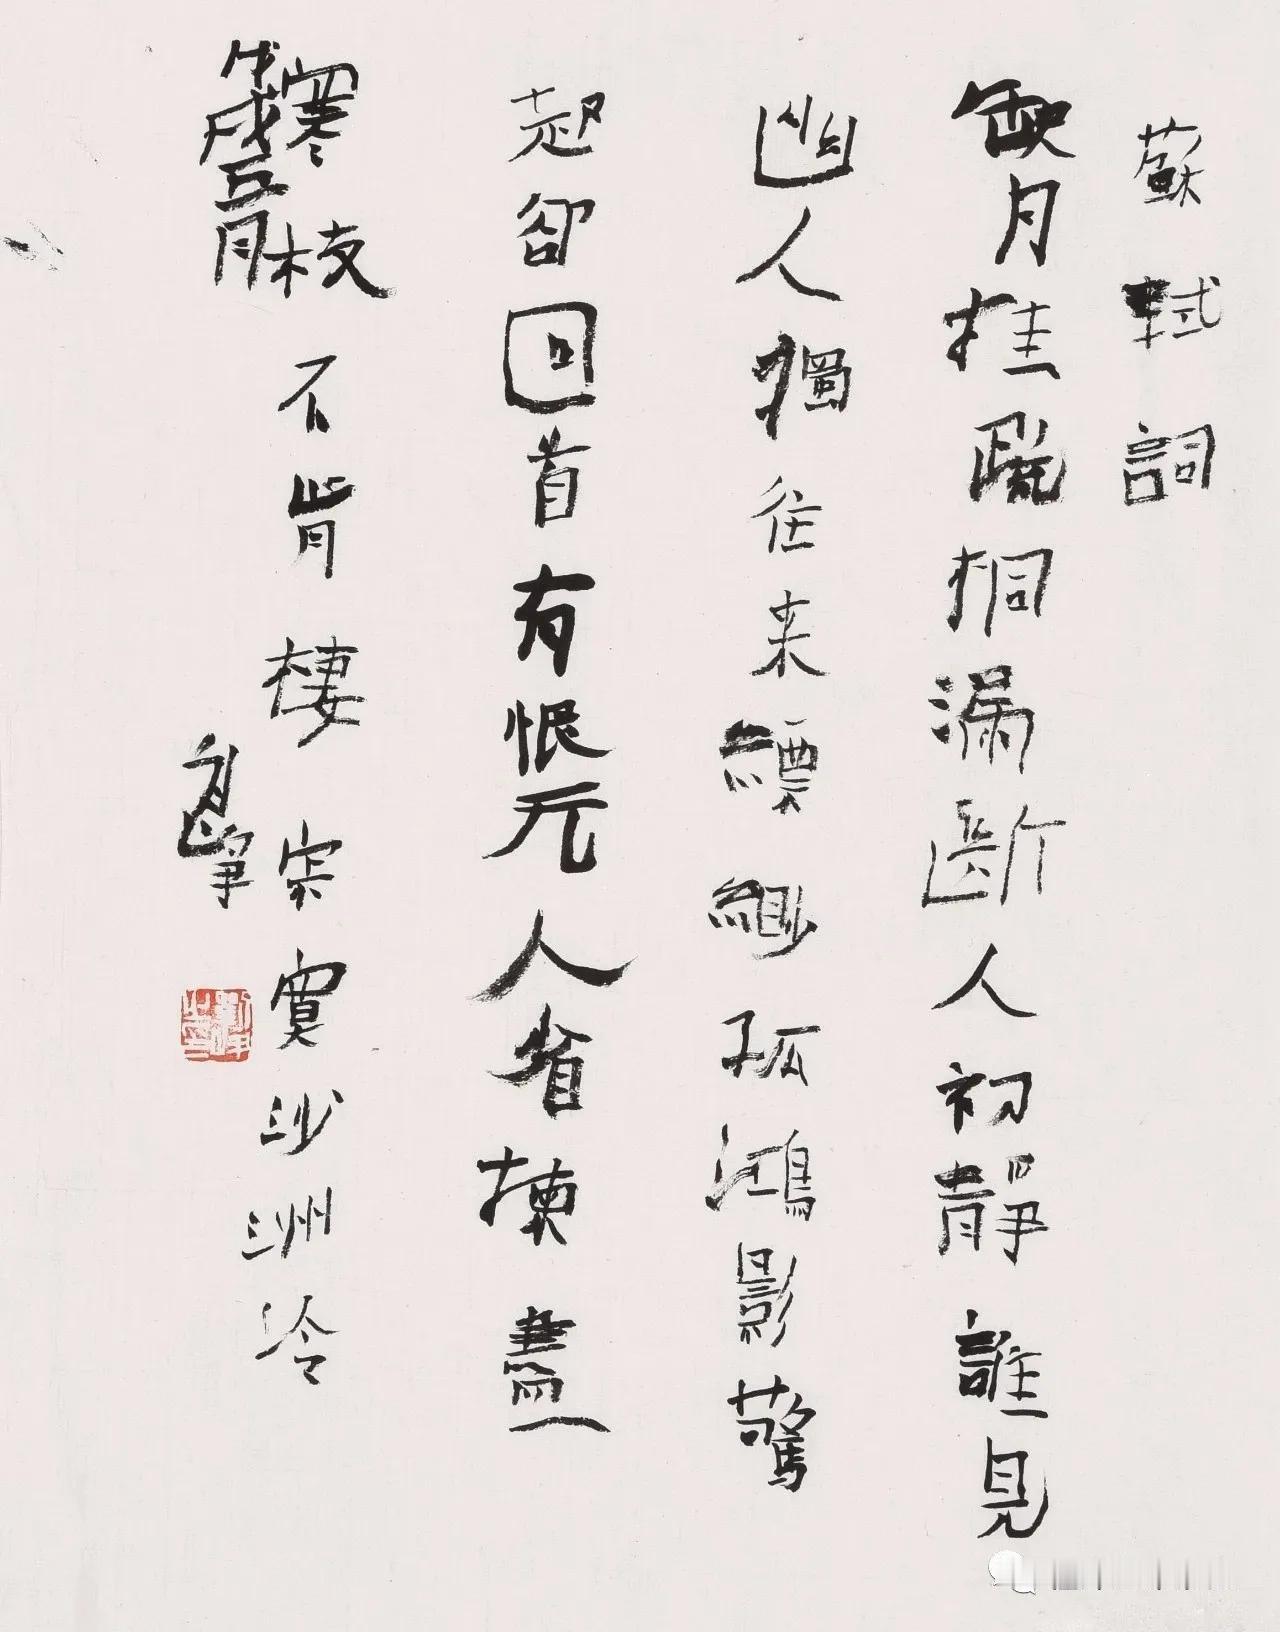 蘇軾詞
缺月挂疏桐漏斷人初靜誰見
幽人獨往来縹緲孤鴻影驚
起卻回首有恨无人省揀盡
寒枝不肯棲寂寞沙洲冷
戊戌五月